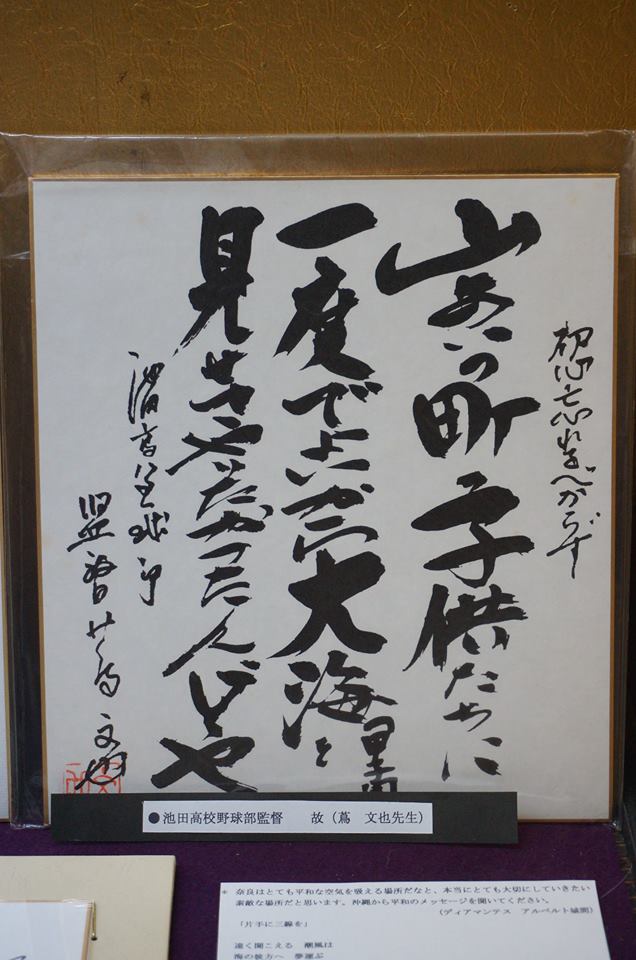 初心忘れるべからず
山あいの町子供たちに
一度でよいから大海を
見せてやりたかったんぢや
池高野球部
監督 蔦文也
●池田高校野球部監督 故(蔦 文也先生)
* 奈良はとても平和な空気を吸える場所だなと、本当にとても大切にしていきたい
素敵な場所だと思います。沖縄から平和のメッセージを聞いてください。
(ディアマンテス アルベルト城間)
「片手に三線を」
遠く聞こえる 潮風は
海の彼方へ 夢運ぶ